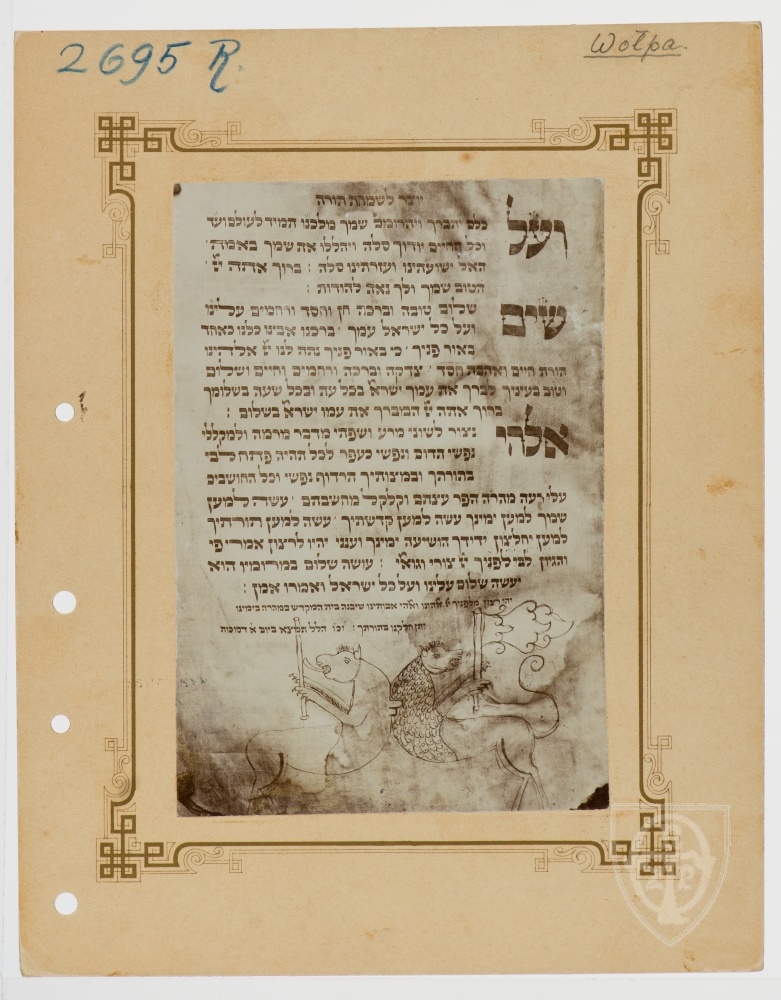 2695 R.
Wołpa.
יוצר לשמחת תורה
ועל כלם יתברך ויתרומם שמך מלכנו תמיד לעולם ועד
וכל החיים יודוך סלה ויהללו את שמך באמת
האל ישועתינו ועזרתינו סלה : ברוך אתה יי
הטוב שמך ולך נאה להודות :
שים שלום טובה וברכה חן וחסד ורחמים עלינו
ועל כל ישראל עמך ברכנו אבינו כלנו כאחד
באור פניך כי באור פניך נתת לנו יי אלהינו
תורת חיים ואהבת חסד צדקה וברכה ורחמים וחיים ושלום
וטוב בעיניך לברך את עמך ישראל בכל עת ובכל שעה בשלומך
ברוך אתה יי המברך את עמו ישראל בשלום :
אלהי נצור לשוני מרע ושפתי מדבר מרמה ולמקללי
נפשי תדום ונפשי כעפר לכל תהיה פתח לבי
בתורתך ובמצותיך תרדוף נפשי וכל החושבים
עלי רעה מהרה הפר עצתם וקלקל מחשבתם עשה למען
שמך למען ימינך עשה למען קדשתיך עשה למען תורתיך
למען יחלצון ידידך הושיעה ימינך וענני יהיו לרצון אמרי פי
והגיון לבי לפניך יי צורי וגואלי : עושה שלום במרומיו הוא
יעשה שלום עלינו ועל כל ישראל ואמרו אמן :
יהי רצון מלפניך יי אלהינו ואלהי אבותינו שיבנה בית המקדש במהרה בימינו
ותן חלקנו בתורתך : הלל תמיצא ביום א דסוכות